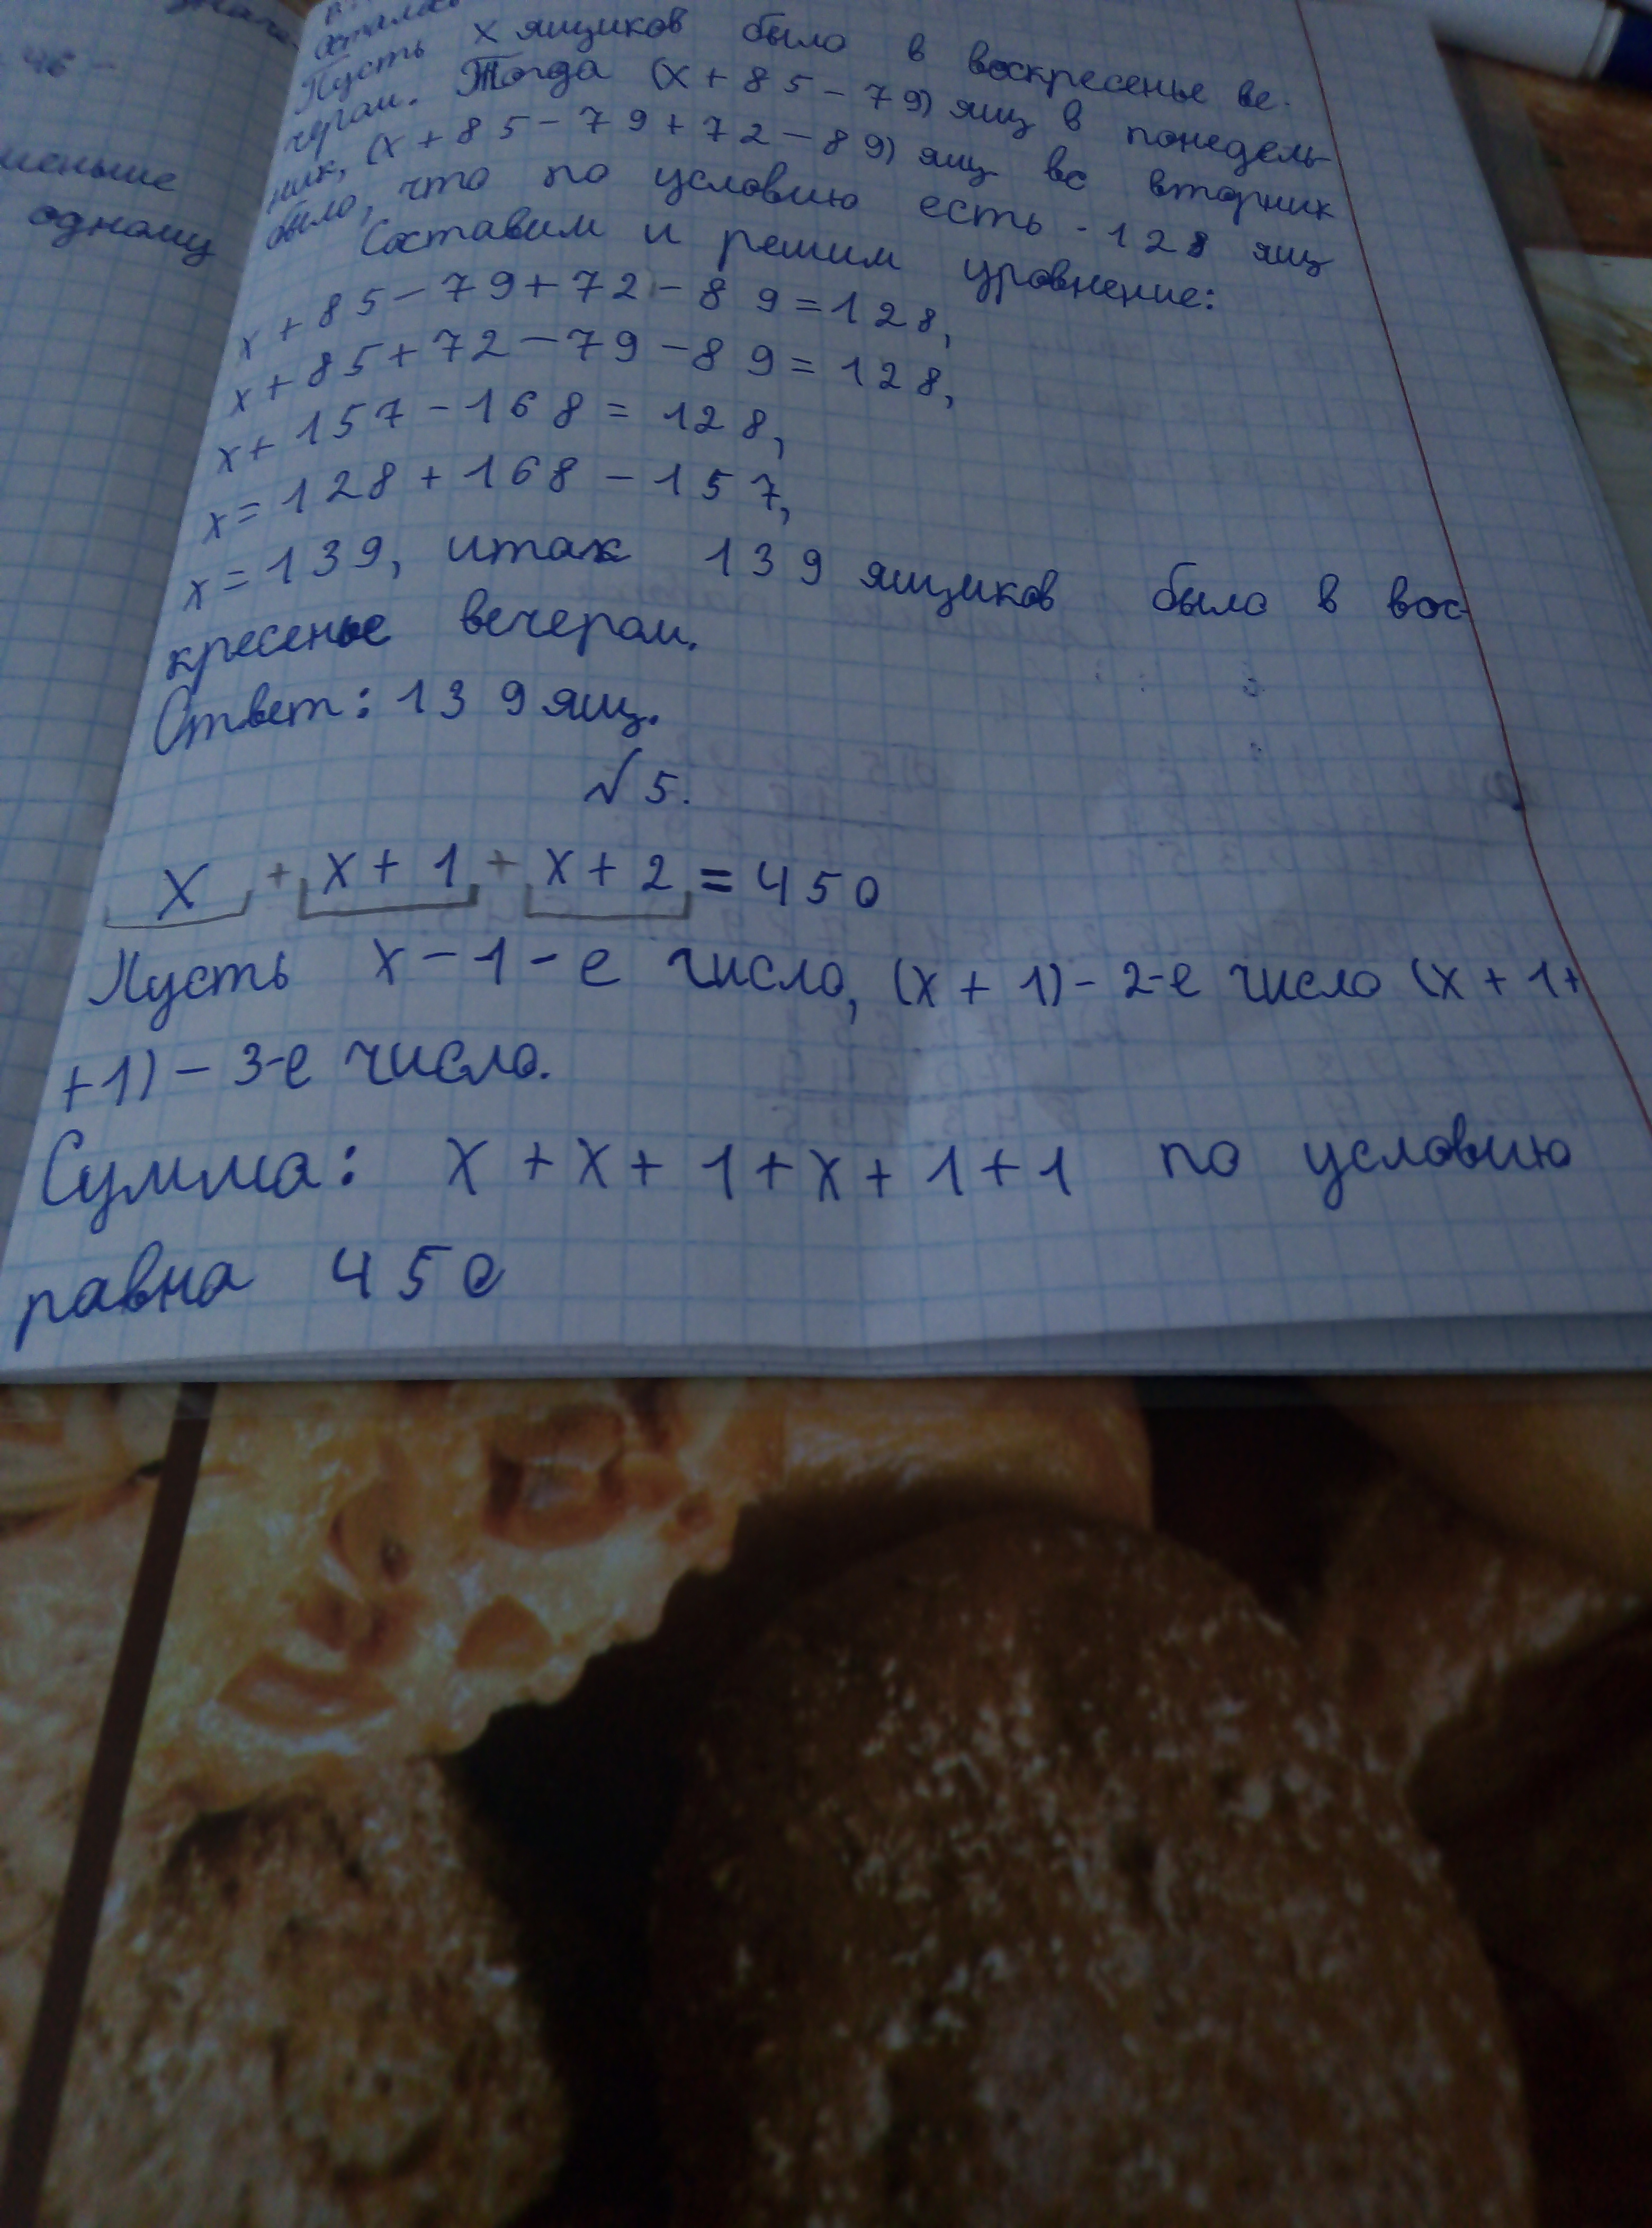 46 -
меньше
одному
Осталось
Пусть х ящиков было в воскресенье ве-
чером. Тогда (х + 85 - 79) ящ в понедель-
ник, (х + 85 - 79 + 72 - 89) ящ во вторник
было, что по условию есть - 128 ящ
Составим и решим уровнение:
х + 85 - 79 + 72 - 89 = 128,
х + 85 + 72 - 79 - 89 = 128,
х + 157 - 168 = 128,
х = 128 + 168 - 157,
х = 139, итак 139 ящиков было в вос-
кресенье вечером.
Ответ: 139 ящ.
№ 5.
х + х + 1 + х + 2 = 450
Пусть х - 1-е число, (х + 1) - 2-е число (х + 1 +
+ 1) - 3-е число.
Сумма: х + х + 1 + х + 1 + 1 по условию
равна 450